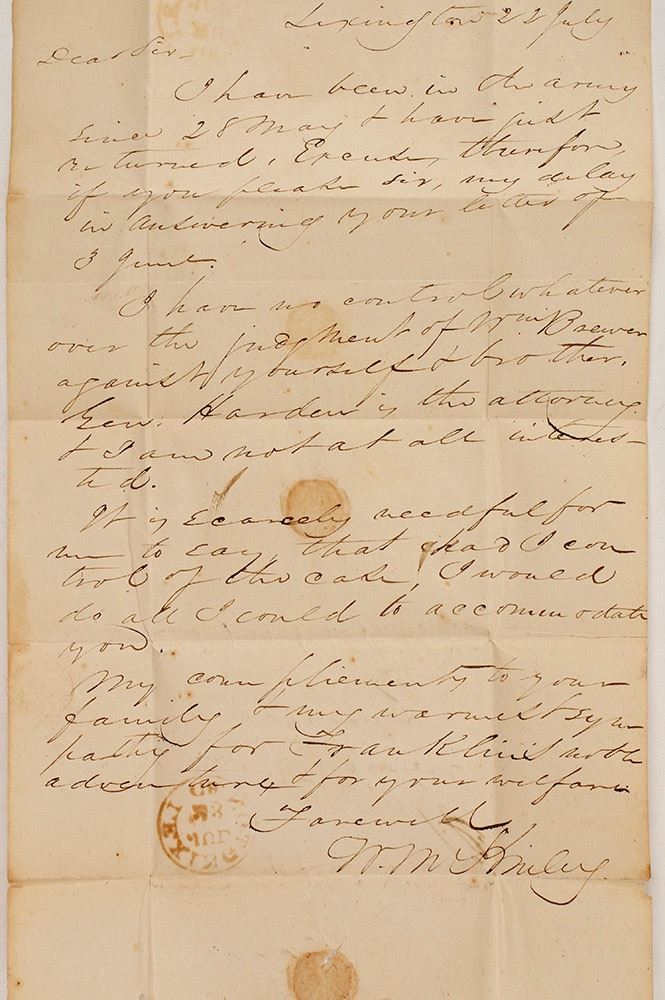 Lexington 22 July
Dear Sir -
I have been in the army
since 28 May & have just
returned. Excuse, therefore,
if you please Sir, my delay
in answering your letter of
3 June.
I have no control whatever
over the judgment of Wm Brewer
against yourself & brother.
Gen. Harden is the attorney
& I am not at all interes-
ted.
It is scarcely needful for
me to say, that had I con
trol of the case, I would
do all I could to accommodate
you.
My compliments to your
family & my warmest sym
pathy for Franklin's noble
adventure & for your welfare
Farewell
W. McKinley